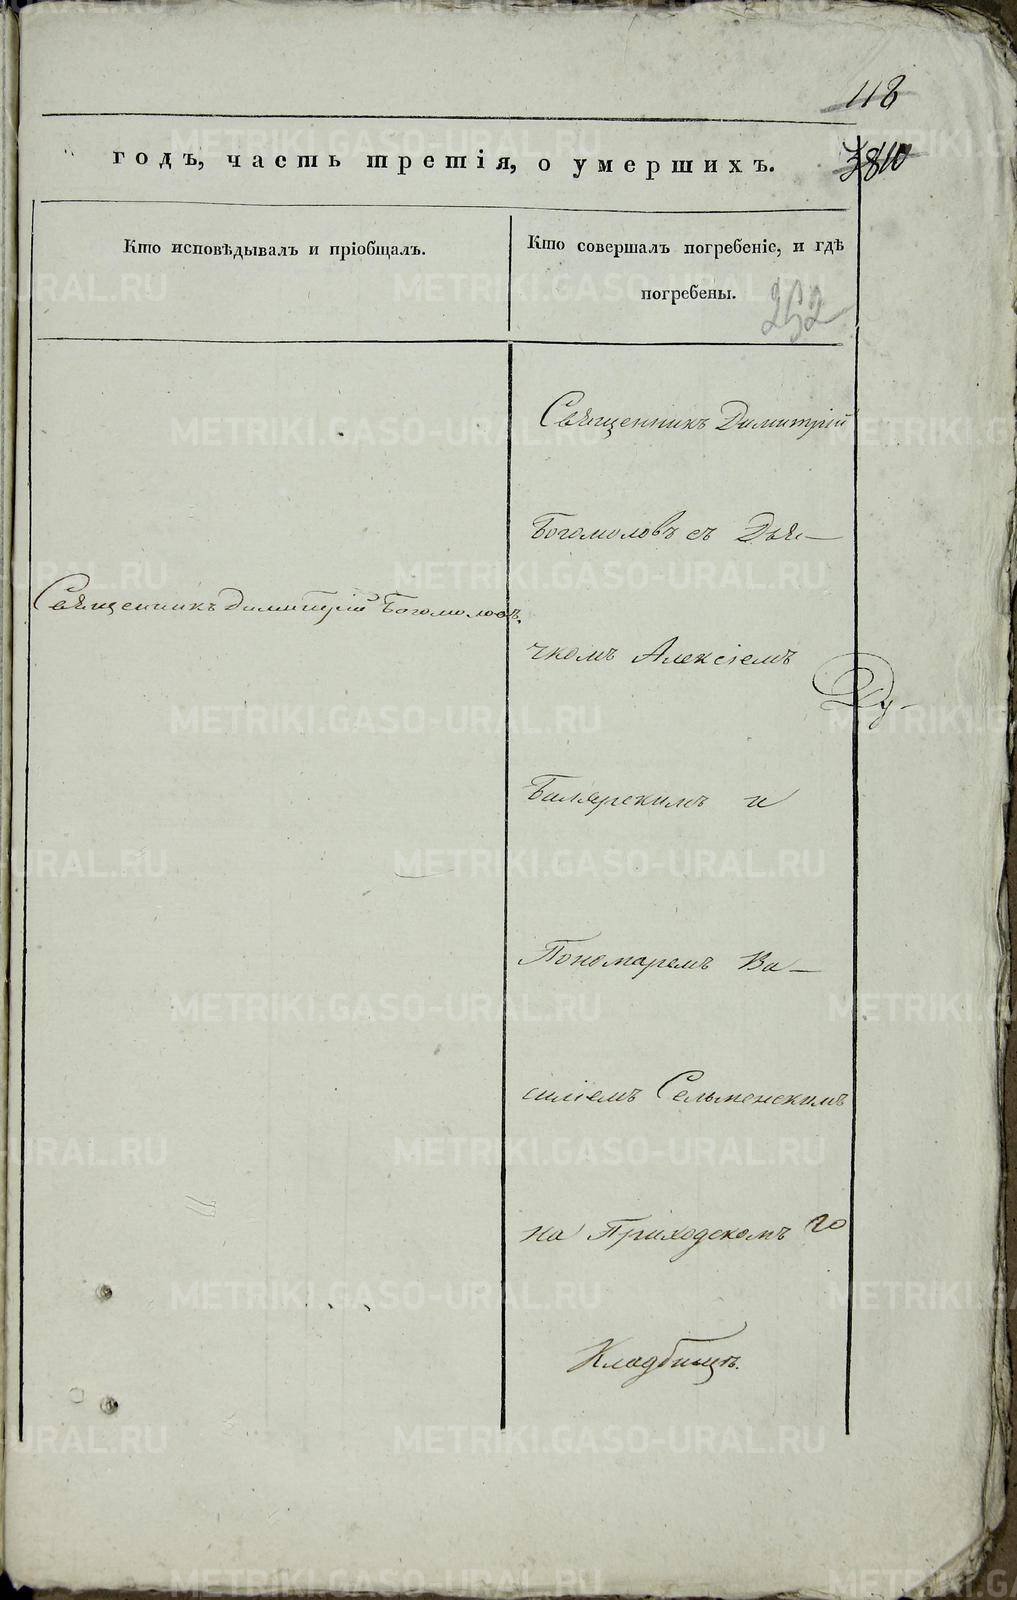 118
годъ, часть третія, о умершихъ.
Кто исповѣдывалъ и пріобщалъ.
Кто совершалъ погребеніе, и гдѣ
погребены.
252
Священникъ Димитрій
Богомоловъ съ Дья-
Священникъ Димитрій Богомоловъ.
чкомъ Алексіемъ
Ду-
Билярскимъ и
Пономаремъ Ва-
силіемъ Сельменскимъ
на Приходскомъ го
Кладбищѣ.
METRIKI.GASO-URAL.RU